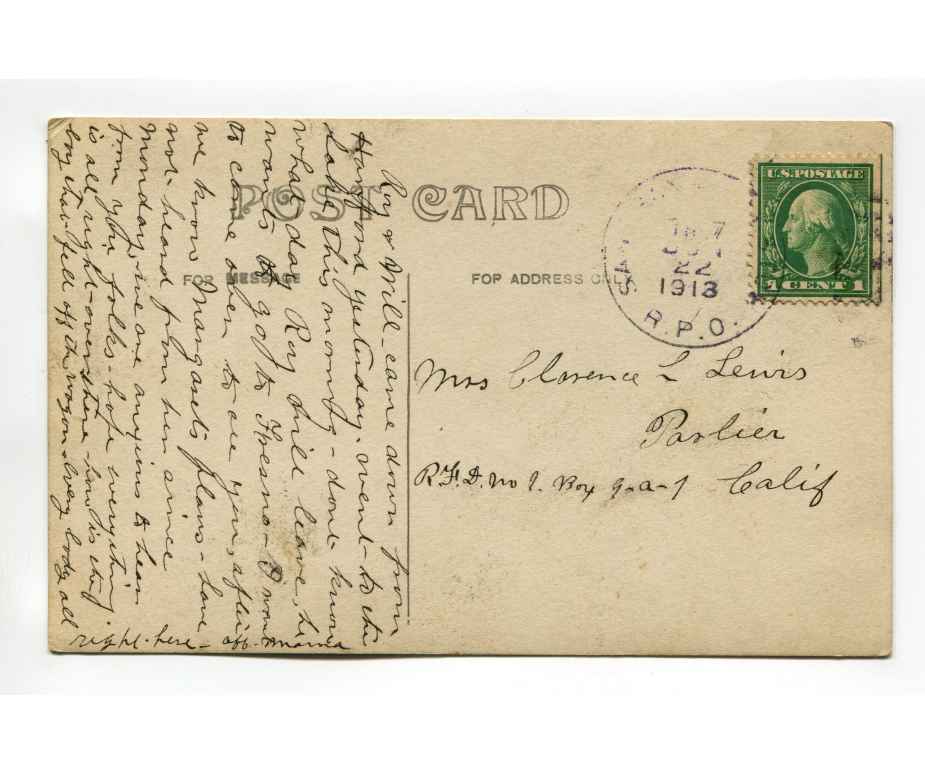 POST CARD
FOR MESSAGE
FOR ADDRESS ONLY
U.S. POSTAGE
1 CENT 1
SAN
22
1913
R.P.O.
Mrs Clarence L Lewis
Parlier
R.F.D. No 1. Box 9-a-1 Calif
Roy & Will came down from
Hanford yesterday - went to the
Lake this morning - dont know
what day Roy will leave, he
wants to go to Fresno - I want
to come over to see you, after
we know Margaets plans - have
not - heard from her since
Monday, we are anxious to hear
from you folks - hope everything
is all right - over there - how is the
boy that fell off the wagon - every body all
right - here - aff. Mama